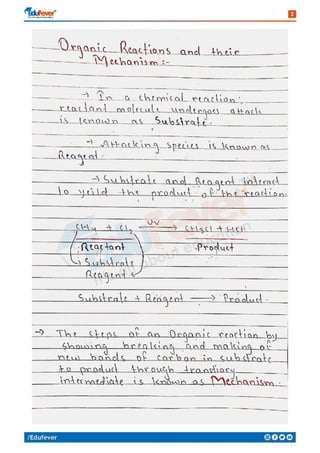 Edufever
2
Organic Reactions and their
Mechanism:-
→ In a chemical reaction,
reactant molecule undergoes attack
is known as Substrate.
→ Attacking species is known as
Reagent.
→ Substrate and Reagent interact
to yeild the product of the reaction.
CH4 + Cl2 UV→ CH3Cl + HCl
Reactant Product
→ Substrate
Reagent
Substrate + Reagent → Product.
→ The steps of an Organic reaction by
showing breaking and making of
new bonds of carbon in substrate
to product through transitory
intermediate is known as Mechanism.
/Edufever